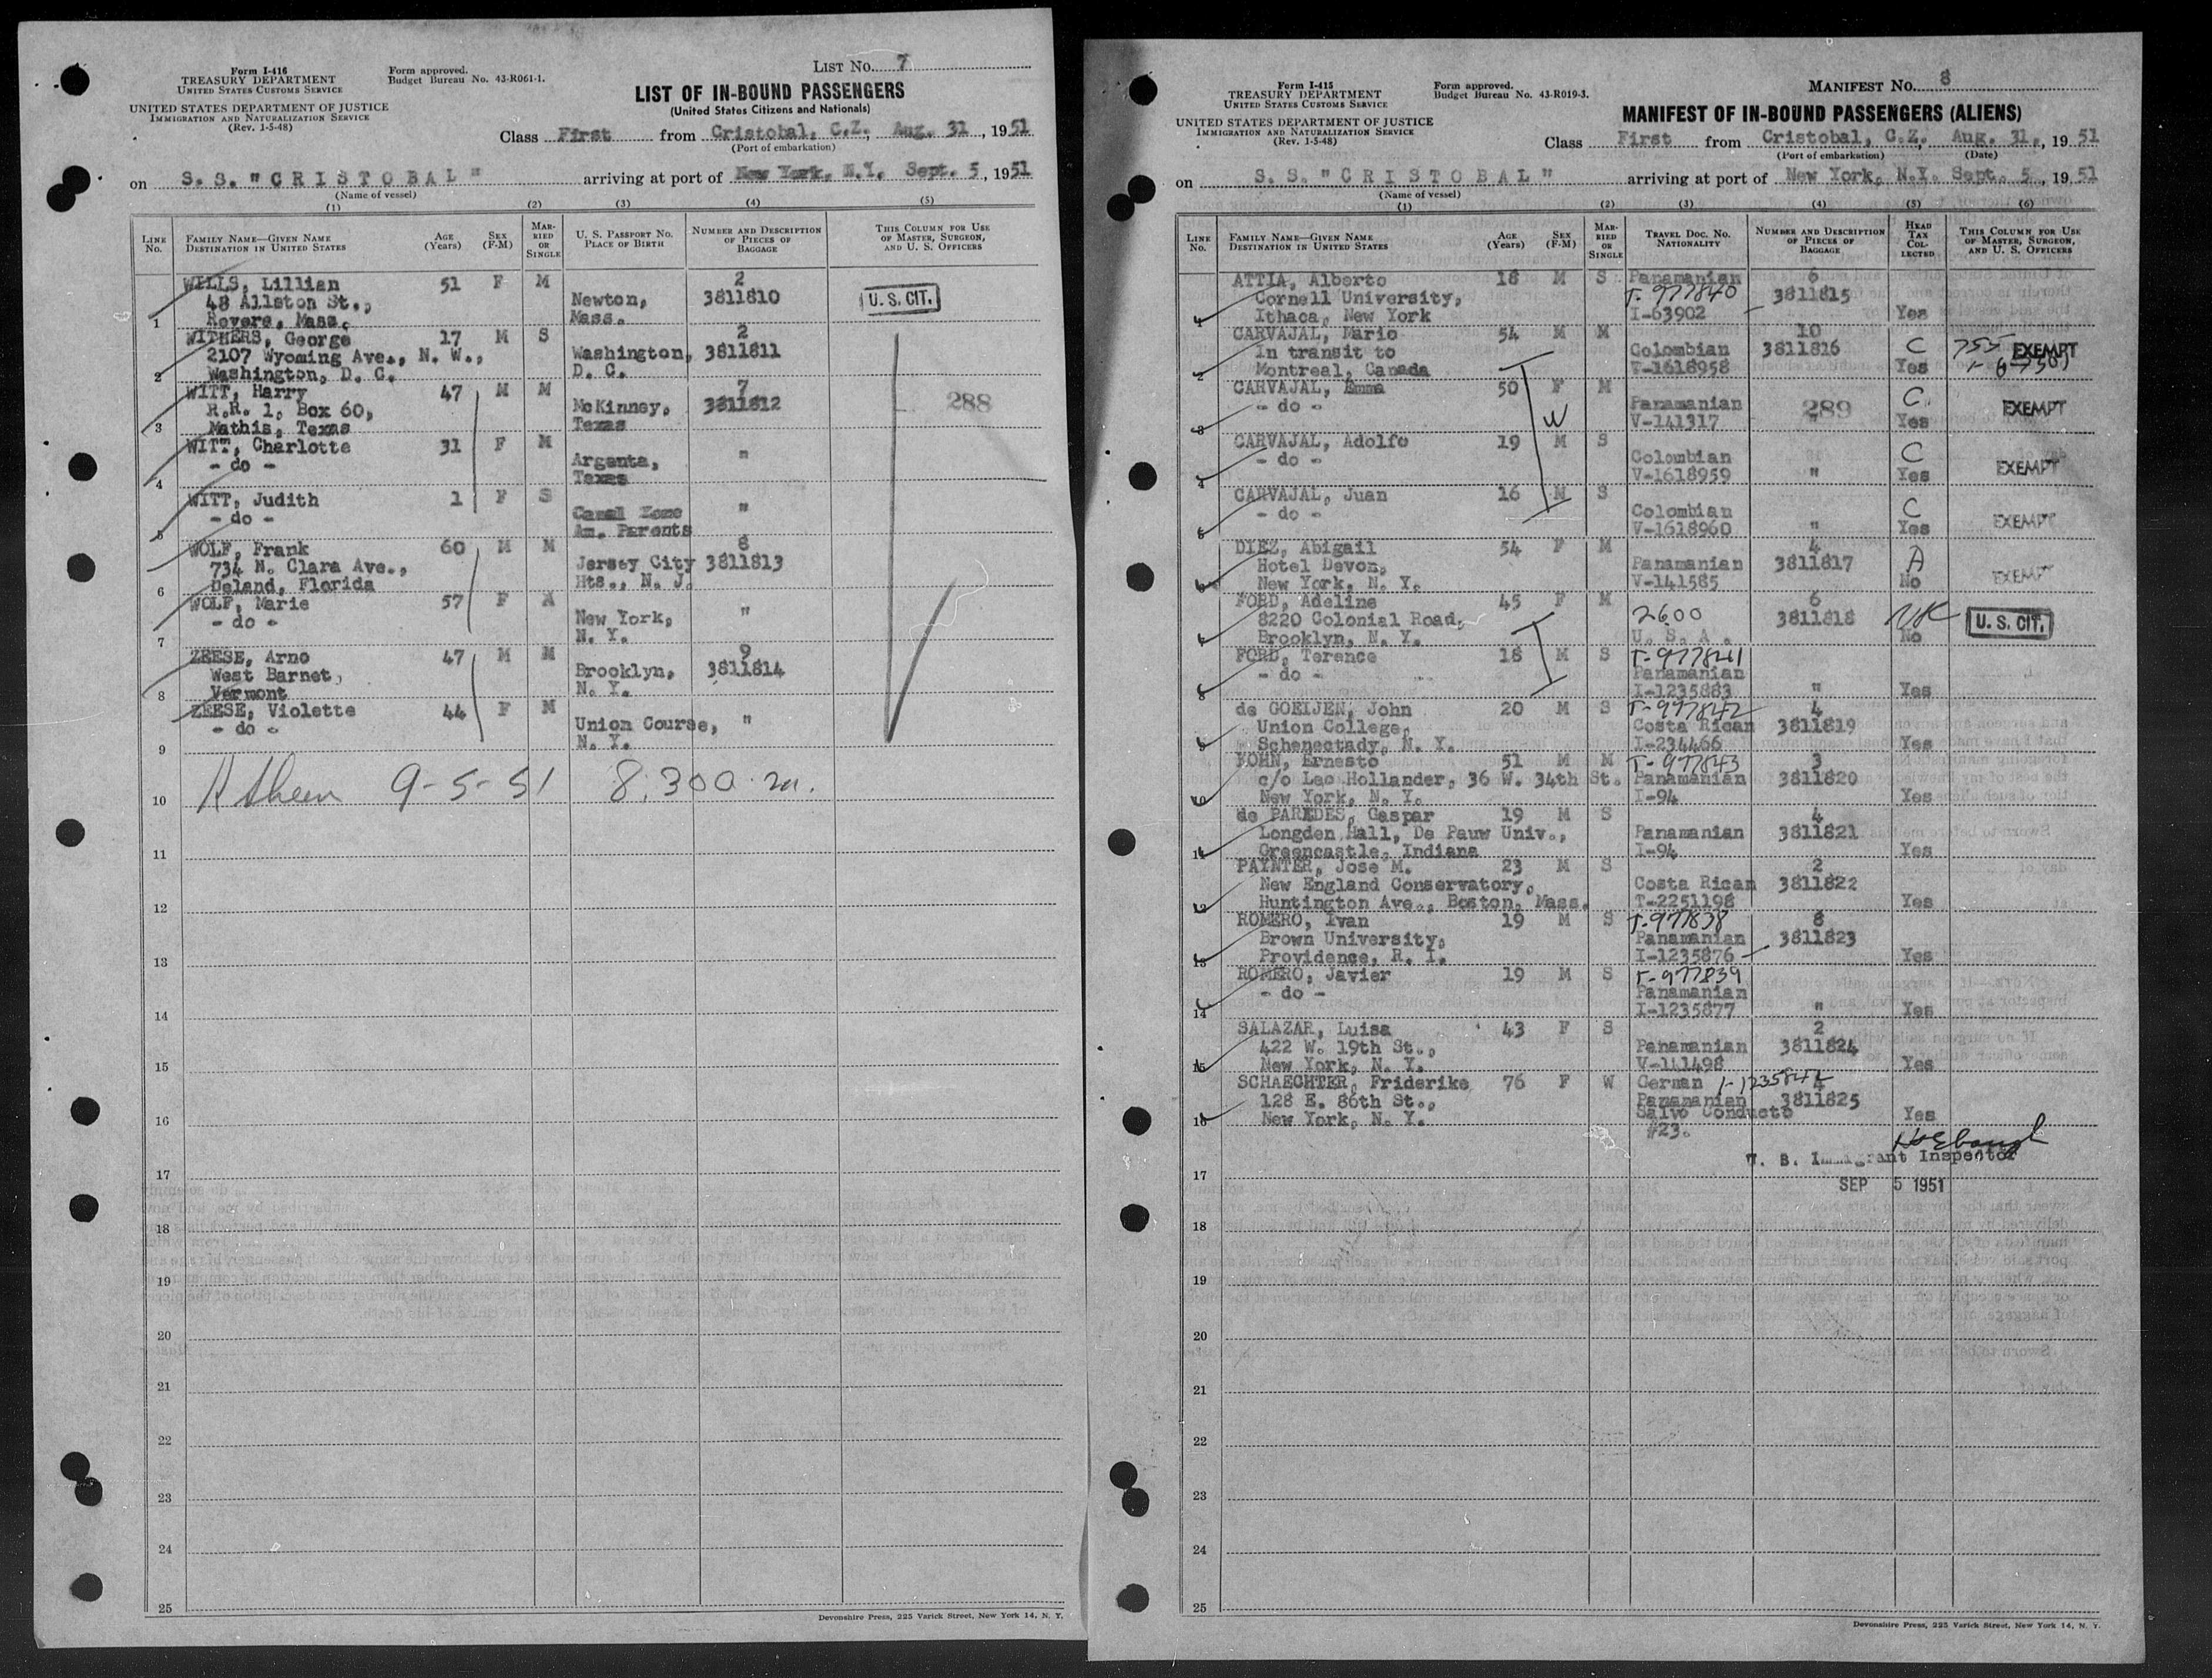 Form I-416
TREASURY DEPARTMENT
UNITED STATES CUSTOMS SERVICE
UNITED STATES DEPARTMENT OF JUSTICE
IMMIGRATION AND NATURALIZATION SERVICE
(Rev. 1-5-48)
Form approved.
Budget Bureau No. 43-R061-1.
LIST NO. 7
LIST OF IN-BOUND PASSENGERS
(United States Citizens and Nationals)
Class First from Cristobal, C.Z., Aug. 31, 1951
(Port of embarkation)
on S. S. "CRISTOBAL" arriving at port of New York, N.Y. Sept. 5, 1951
(Name of vessel)
(1) (2) (3) (4) (5)
LINE NO. FAMILY NAME—GIVEN NAME DESTINATION IN UNITED STATES AGE (Years) SEX (F-M) MARRIED OR SINGLE U. S. PASSPORT NO. PLACE OF BIRTH NUMBER AND DESCRIPTION OF PIECES OF BAGGAGE THIS COLUMN FOR USE OF MASTER, SURGEON, AND U. S. OFFICERS
WILLS, Lillian 51 F M 2
48 Allston St., Newton, 3811810 U.S. CIT.
1 Revere, Mass. Mass.
WITHERS, George 17 M S 2
2107 Wyoming Ave., N. W., Washington, 3811811
2 Washington, D. C. D. C.
WITT, Harry 47 M M 7
R.R. 1, Box 60, McKinney, 3811812 288
3 Mathis, Texas Texas
WITT, Charlotte 31 F M
- do - Argenta, "
4 Texas
WITT, Judith 1 F S
- do - Canal Zone "
5 Am. Parents
WOLF, Frank 60 M M 8
734 N. Clara Ave., Jersey City 3811813
6 Deland, Florida Hts., N. J.
WOLF, Marie 57 F
- do - New York, "
7 N. Y.
ZEESE, Arno 47 M M 9
West Barnet, Brooklyn, 3811814
8 Vermont N. Y.
ZEESE, Violette 44 F M
- do - Union Course, "
9 N. Y.
10 9-5-51 8:30 a.m.
11
12
13
14
15
16
17
18
19
20
21
22
23
24
25
Devonshire Press, 225 Varick Street, New York 14, N. Y.
Form I-415
TREASURY DEPARTMENT
UNITED STATES CUSTOMS SERVICE
UNITED STATES DEPARTMENT OF JUSTICE
IMMIGRATION AND NATURALIZATION SERVICE
(Rev. 1-5-48)
Form approved.
Budget Bureau No. 43-R019-3.
MANIFEST NO. 8
MANIFEST OF IN-BOUND PASSENGERS (ALIENS)
Class First from Cristobal, C.Z., Aug. 31, 1951
(Port of embarkation) (Date)
on S. S. "CRISTOBAL" arriving at port of New York, N.Y. Sept. 5, 1951
(Name of vessel)
(1) (2) (3) (4) (5) (6)
LINE NO. FAMILY NAME—GIVEN NAME DESTINATION IN UNITED STATES AGE (Years) SEX (F-M) MARRIED OR SINGLE TRAVEL DOC. NO. NATIONALITY NUMBER AND DESCRIPTION OF PIECES OF BAGGAGE HEAD TAX COLLECTED THIS COLUMN FOR USE OF MASTER, SURGEON, AND U. S. OFFICERS
ATTIA, Alberto 18 M S Panamanian 6
Cornell University, T-977840 3811815
1 Ithaca, New York I-63902 Yes
CARVAJAL, Mario 54 M M 10
In transit to Colombian 3811816 C EXEMPT
2 Montreal, Canada V-1618958 Yes
CARVAJAL, Emma 50 F M
- do - Panamanian 289 C EXEMPT
3 V-141317 " Yes
CARVAJAL, Adolfo 19 M S
- do - Colombian C EXEMPT
4 V-1618959 " Yes
CARVAJAL, Juan 16 M S
- do - Colombian C EXEMPT
5 V-1618960 " Yes
DIEZ, Abigail 54 F M 4
Hotel Devon, Panamanian 3811817 A EXEMPT
6 New York, N. Y. V-141585 No
FORD, Adeline 45 F M 6
8220 Colonial Road, 2600 3811818 U.S. CIT.
7 Brooklyn, N. Y. U. S. A. No
FORD, Terence 18 M S T-977841
- do - Panamanian
8 I-1235883 " Yes
de GOEIJEN, John 20 M S T-977842 4
Union College, Costa Rican 3811819
9 Schenectady, N. Y. I-234466 Yes
FOHN, Ernesto 51 M M T-977843 3
c/o Leo Hollander, 36 W. 34th St. Panamanian 3811820
10 New York, N. Y. I-94 Yes
de PAREDES, Gaspar 19 M S 4
Longden Hall, De Pauw Univ., Panamanian 3811821
11 Greencastle, Indiana I-94 Yes
PAYNTER, Jose M. 23 M S 2
New England Conservatory, Costa Rican 3811822
12 Huntington Ave., Boston, Mass. T-2251198 Yes
ROMERO, Ivan 19 M S T-977838 8
Brown University, Panamanian 3811823
13 Providence, R. I. I-1235876 Yes
ROMERO, Javier 19 M S T-977839
- do - Panamanian
14 I-1235877 " Yes
SALAZAR, Luisa 43 F S 2
422 W. 19th St., Panamanian 3811824
15 New York, N. Y. V-141498 Yes
SCHAECHTER, Friderike 76 F W German 4
128 E. 86th St., Panamanian 3811825
16 New York, N. Y. Salvo Conducto Yes
#23.
U. S. Immigrant Inspector
17
SEP 5 1951
18
19
20
21
22
23
24
25
Devonshire Press, 225 Varick Street, New York 14, N. Y.